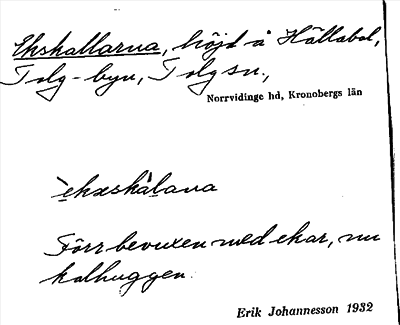 Ekskallarna, höjd å Hällabol,
Tolg-byn, Tolg sn.,
Norrvidinge hd, Kronobergs län
`ekxskàlana
Förr bevuxen med ekar, nu
kalhuggen.
Erik Johannesson 1932